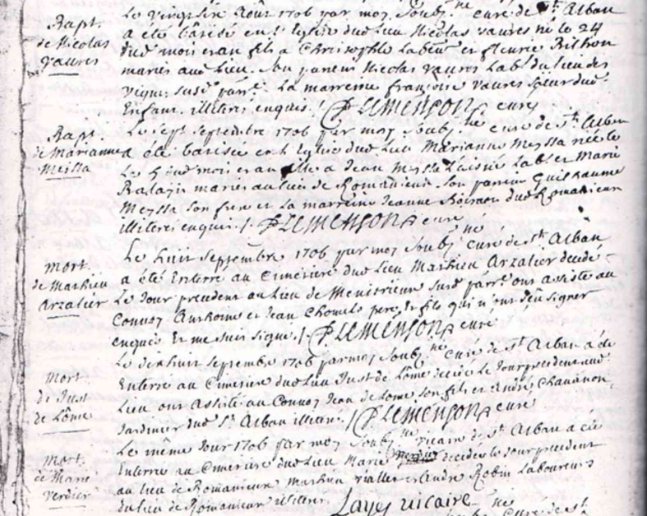 Bapt.
de Nicolas
Vaures
Le vingt six Août 1706 par moy soub.né curé de St Alban
a eté batisé en l'Eglise dud lieu Nicolas Vaures né le 24
dud mois et an fils a Christophle Lab et Fleurie
mariés aud lieu. Son parrein Nicolas Vaures Lab.r du lieu des
Vignes susd parr. La marreine françoise Vaures sœur dud
Enfant illiteres enquis. / PLEMENSON curé
Bapt.
de Marianne
Meissa
Le sept Septembre 1706 par moy soub.né curé de St Alban
a été batisée en l'Eglise dud lieu Marianne Meyssa née le
dud mois et an fille a Jean Meyssa Lab.r et Marie
mariés au lieu de Romanieux son parrein Guilhaume
Meyssa son frere et la marreine Jeanne dud Romanieux
illiteres enquis. / PLEMENSON curé
mort
de Mathieu
Arzalier
Le huit Septembre 1706 par moy soub.né curé de St Alban
a été Enterré au Cimetière dud lieu Mathieu Arzalier décédé
Le Jour precedent au lieu de susd parr. ont assisté au
Convoy Anthoine et Jean pere et fils qui n'ont sceu signer
enquis Et me suis signé. / PLEMENSON curé
mort
de Just
de Lôme
Le dixhuit Septembre 1706 par moy soub.né Curé de St Alban a été
Enterré au Cimetière dud lieu Just de Lôme décédé le Jour precedent aud
Lieu ont assisté au Convoy Jean de Lome son fils et André Chavanon
Jardinier dud St Alban illiteres. / PLEMENSON curé
mort
de Marie
Verdier
Le même Jour 1706 par moy soub.né vicaire de St Alban a été
Enterrée au Cimetière dud lieu Marie Verdier décédée le Jour precedent
au lieu de Romanieux Mathieu Vialle et André Robin Laboureurs
du lieu de Romanieux illiteres. Layes vicaire